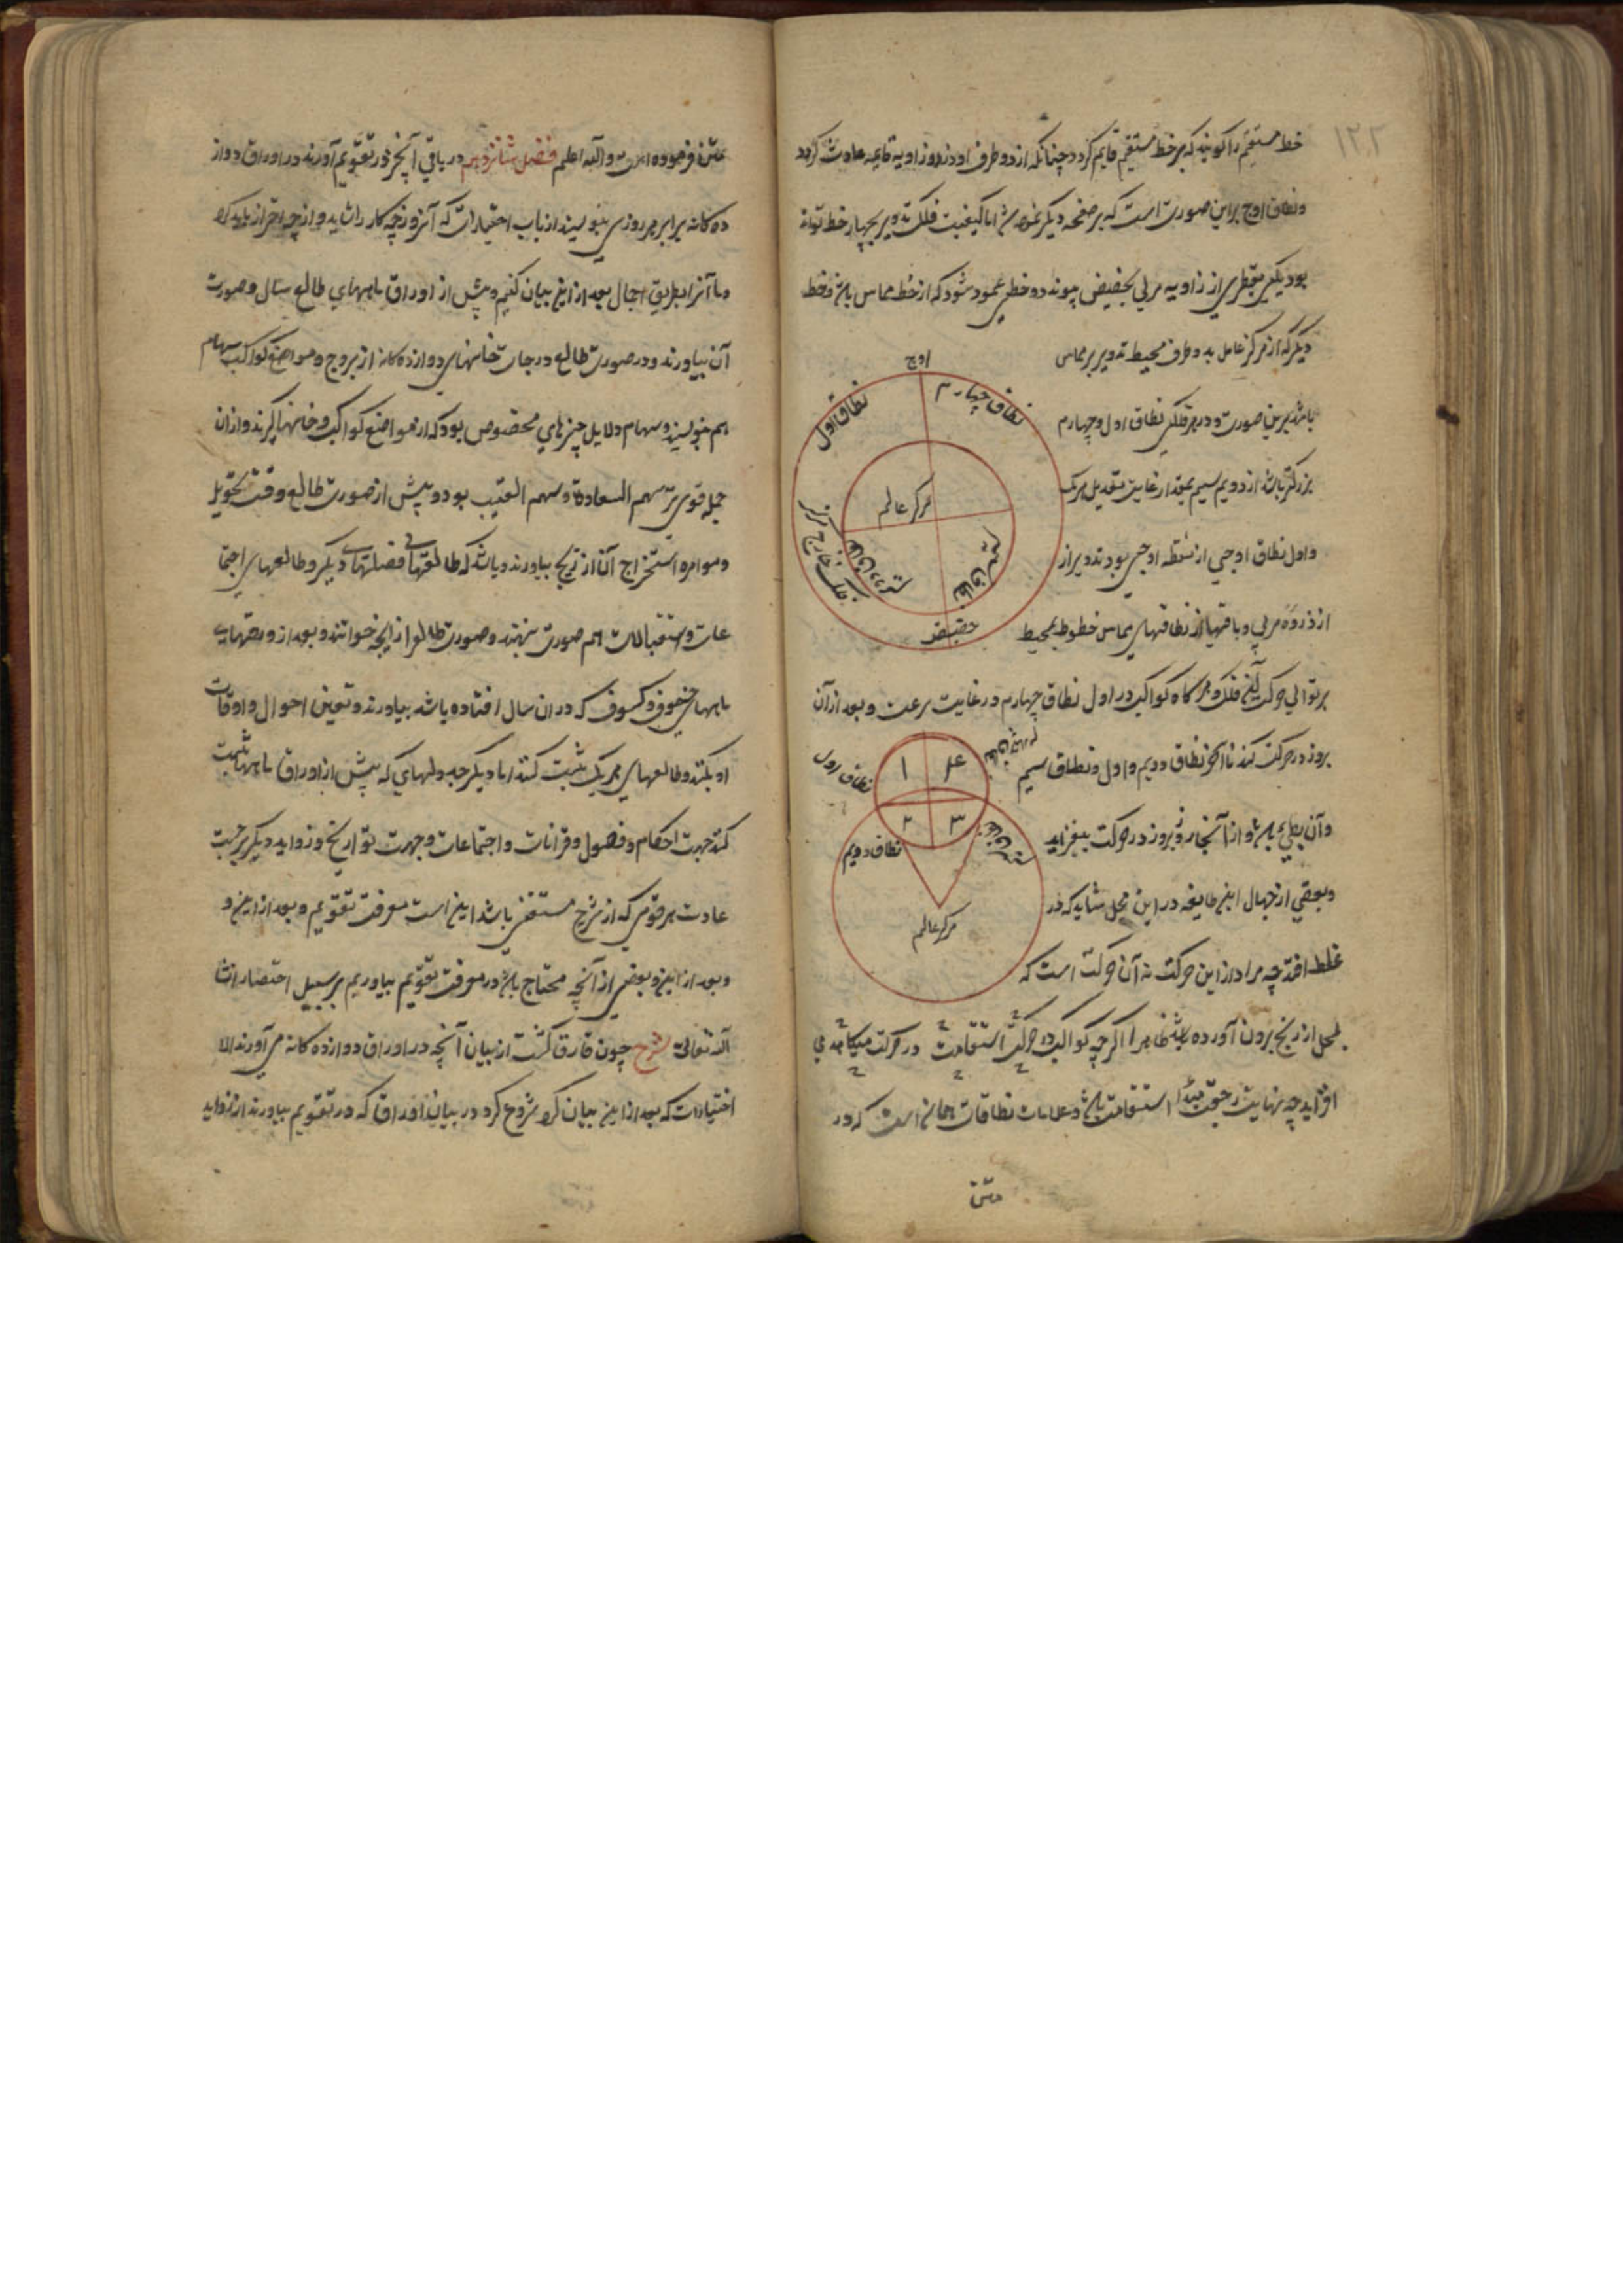 ۱۲۲
خط مستقیم را گویند که بر خط مستقیم قایم گردد چنانکه از دو طرف او دو زاویه قایمه حادث گردد
و نطاق اوج براین صورت است که بر صفحه دیگر اما کیفیت فلک تدویر بچهار خط تواند
بود یکی بقطری از زاویه مرئی بحضیض پیوند دو خطی عمود شود که از خط مماس و خط
دیگر که از مرکز عامل بدو طرف محیط تدویر بر مماس
باشد برین صورت و در هر فلکی نطاق اول و چهارم
بزرگتر باشد از دویم سیم بمقدار غایت تعدیل هریک
و اول نطاق اوجی از نقطه اوجی بود تدویر از
از ذروه مرئی و باقیها از نطاقهای مماس خطوط بمحیط
بر توالی حرکت فلک و هرگاه کواکب در اول نطاق چهارم در غایت سرعت و بعد از آن
بروز در حرکت کند تا آخر نطاق دویم و اول و نطاق سیم
و آن بطی و از آنجا روز بروز در حرکت بیفزاید
و بعضی از جهال این طایفه در این محل شاید که در
غلط افتد چه مراد از این حرکت نه آن حرکت است که
بمحل از زیج برون آورده ظاهرا اگر چه کواکب در حرکت استقامت در حرکت می
افزاید چه نهایت رجعت مبدا استقامت و علامات نطاقات همان است که در
متن
اوج
نطاق اول
نطاق چهارم
مرکز عالم
نطاق سیم
نطاق دویم
فلک خارج مرکز
حضیض
نطاق اول
نطاق چهارم
۱
۴
۲
۳
نطاق دویم
نطاق سیم
مرکز عالم
متن فرموده است والله اعلم فصل شانزدهم در باقی آنچه در تقویم آورند در اوراق دواز
ده گانه برابر هر روزی بنویسند از باب اختیارات که آنروز چه کار را شاید و از چه احتراز باید کرد
و ما آنرا بطریق اجمال بعد از این بیان کنیم و پیش از اوراق ماههای طالع سال و صورت
آن بیاورند و در صورت طالع درجات خانهای دوازده گانه از بروج و مواضع کواکب سهام
هم بنویسند و سهام دلایل چیزهای مخصوص بود که از مواضع کواکب و خانها گیرند و از آن
جمله قوی تر سهم السعادة و سهم الغیب بود و پیش از صورت طالع وقت تحویل
و موامره استخراج آن از زیج بیاورند و باشد که طالعهای فصلهای دیگر و طالعهای اجتما
عات و استقبالات هم صورت بنهند و صورت طالع را زایجه خوانند و بعد از وضعهای
ماههای خسوف و کسوف که در آن سال افتاده باشد بیاورند و تعیین احوال و اوقات
او بکنند و طالعهای هر یک ثبت کنند اما دیگر جدولهای که پیش از اوراق ماهها ثبت
کنند جهت احکام و فصول و قرانات و اجتماعات و جهت تواریخ و زواید دیگر بر حسب
عادت هر قومی که از شرح مستغنی باشد این است معرفت تقویم و بعد از این و
و بعد از این و بعضی از آنچه محتاج در معرفت تقویم بیاوریم بر سبیل اختصار انشا
الله تعالی شرح چون فارق گشت از بیان آنچه در اوراق دوازده گانه می آورند الا
اختیارات که بعد از این بیان کرد شروع کرد در بیان اوراق که در تقویم بیاورند از زواید